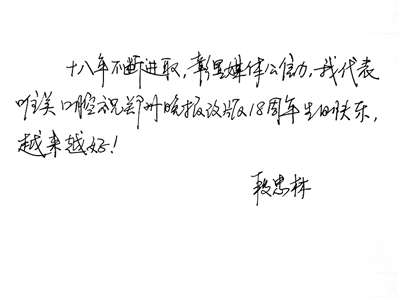 十八年不断进取，彰显媒体公信力，我代表
唯美口腔祝郑州晚报改版18周年生日快乐，
越来越好！
段忠林